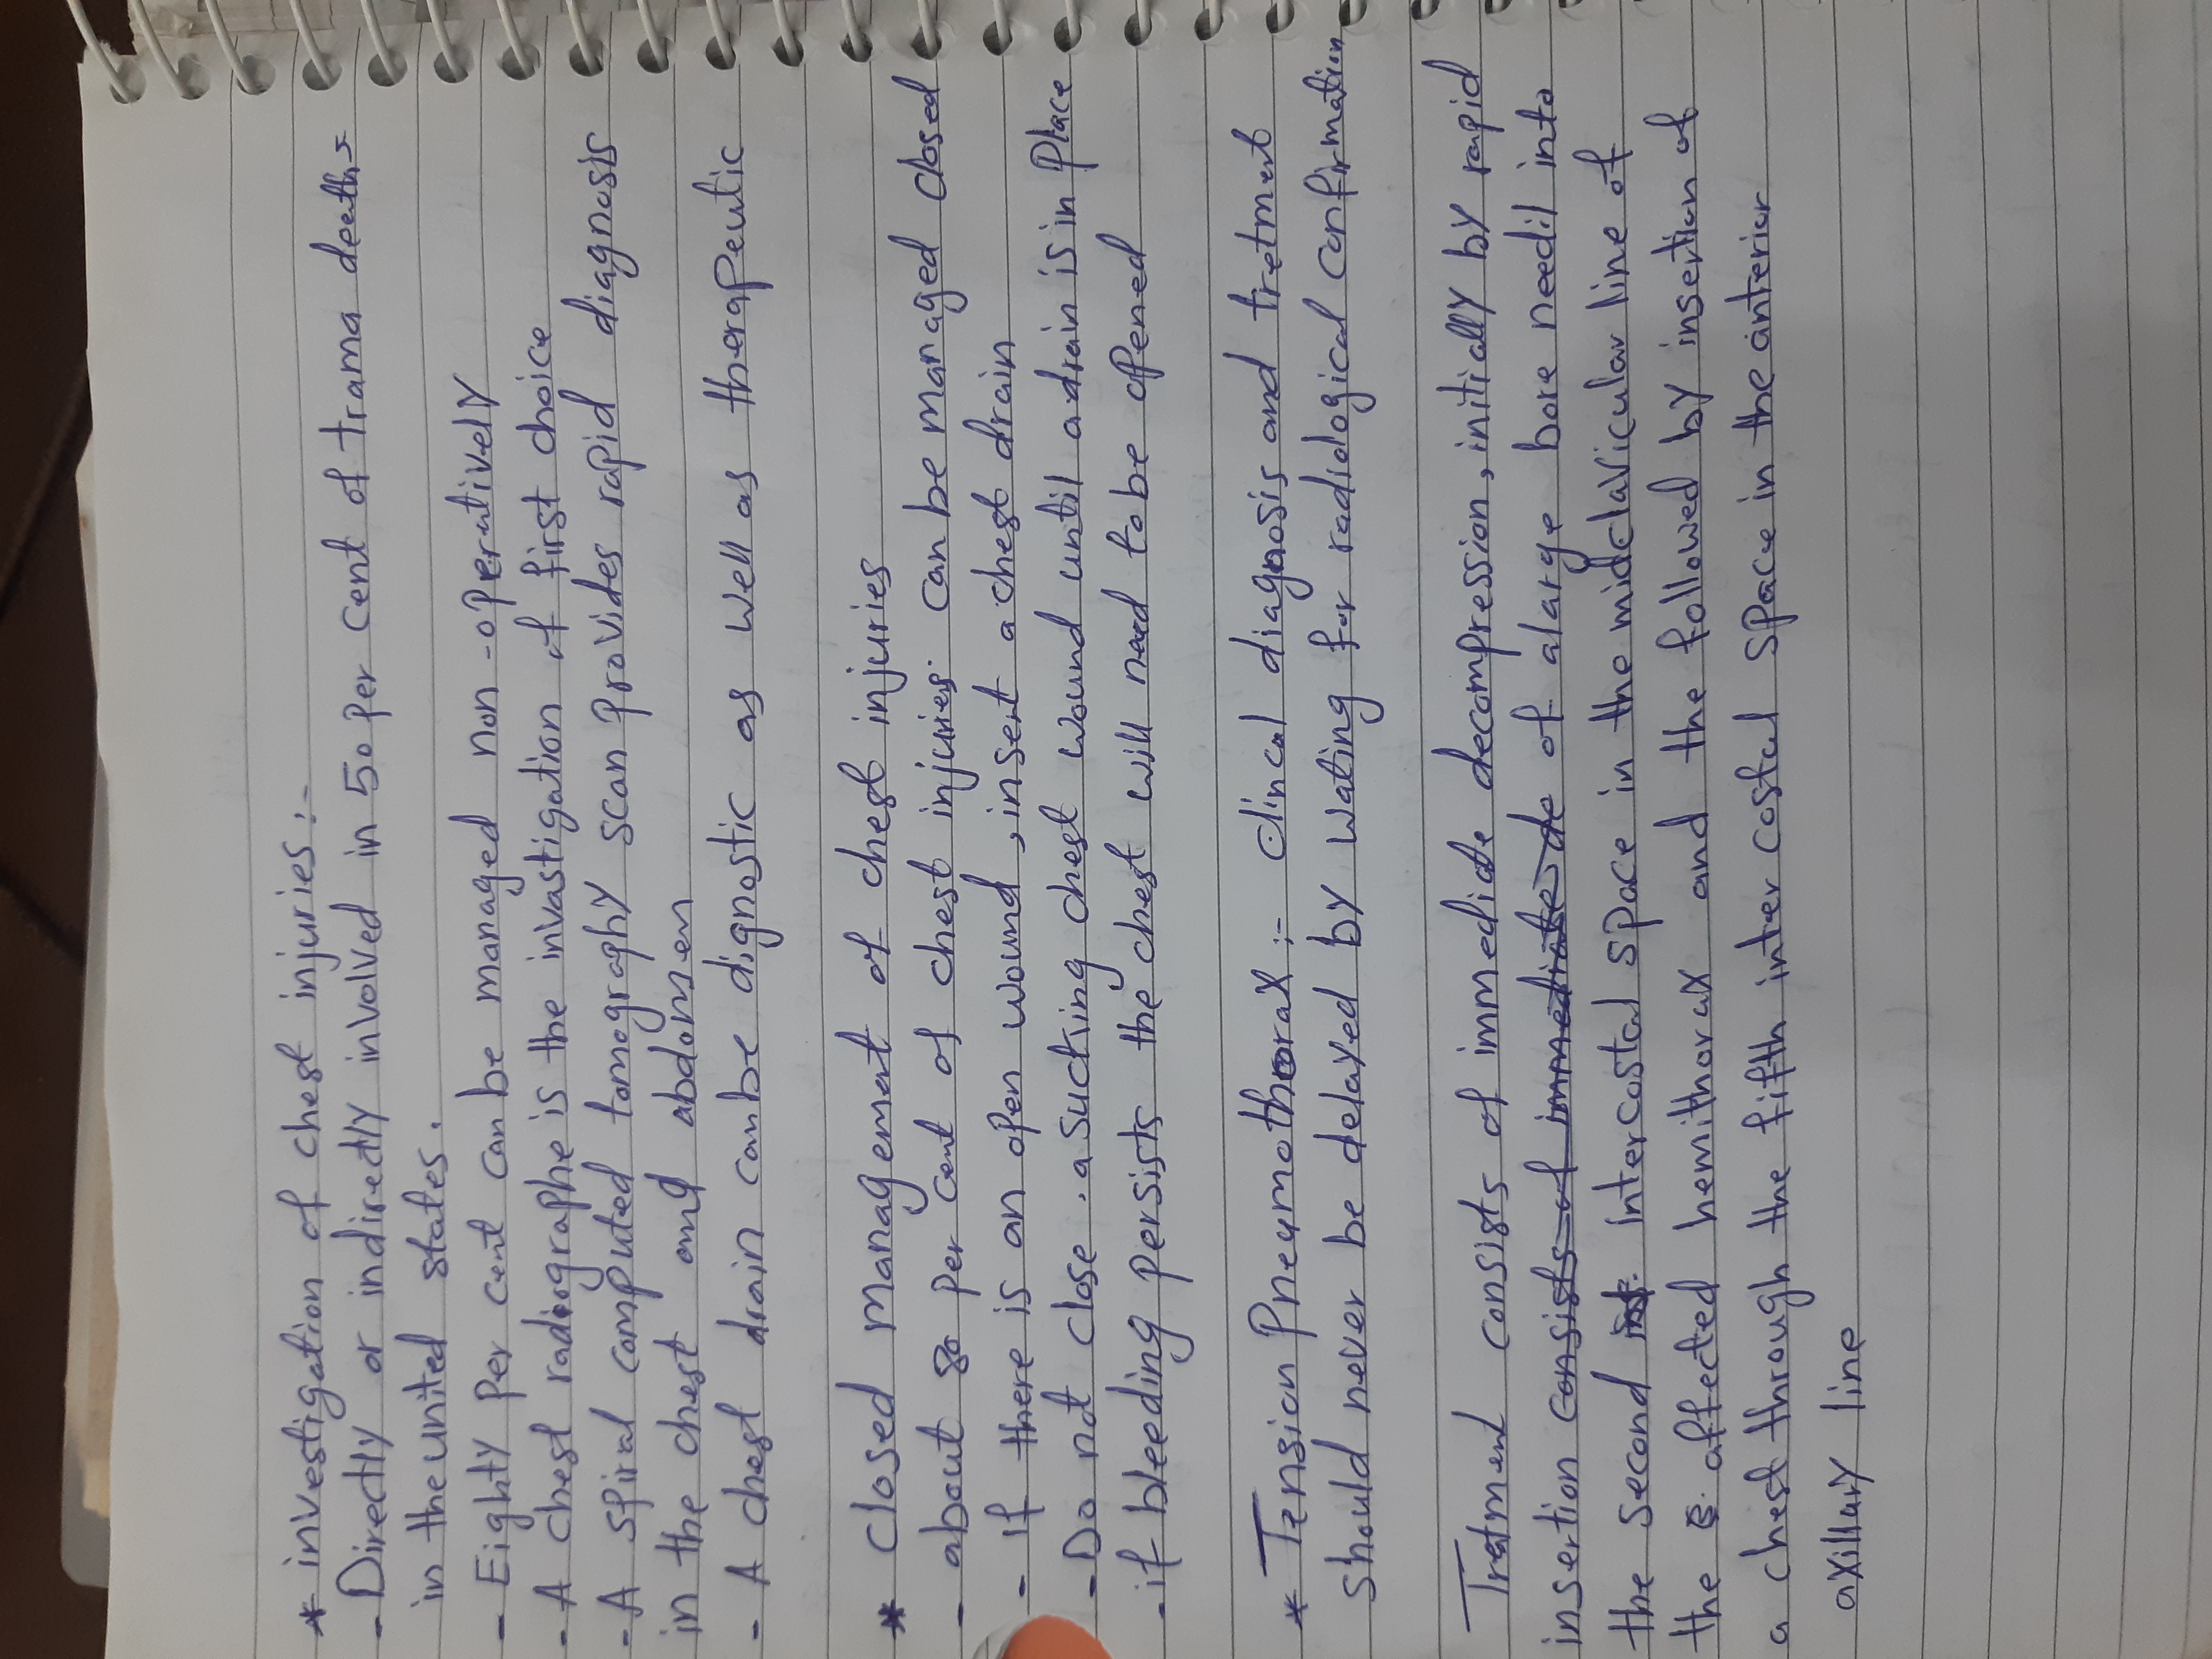 * investigation of chest injuries:-
- Directly or indirectly involved in 50 per cent of trama deaths
in the united states.
- Eighty per cent can be managed non-operatively
- A chest radiographe is the invastigation of first choice
- A spiral computed tomography scan provides rapid diagnosis
in the chest and abdomen
- A chest drain can be dignostic as well as therapeutic
* closed management of chest injuries
- about 80 per cent of chest injuries can be managed closed
- if there is an open wound, insert a chest drain
- Do not close a sucking chest wound until a drain is in place
- if bleeding persists the chest will need to be opened
* Tension Pneumothorax:- clincal diagnosis and tretment
should never be delayed by wating for radiological confirmation
Tretment consists of immediate decompression, initially by rapid
insertion consists of immediate de of a large bore needil into
the second int. intercostal space in the midclavicular line of
the affected hemithorax and the followed by insertion of
a chest through the fifth inter costal space in the anterior
axillary line